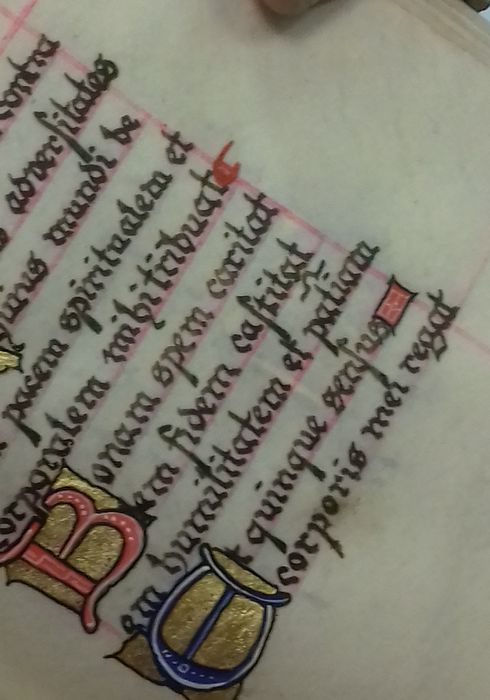 contra
adversitates
mundi de
pacem spiritualem et
corporalem mihi tribuat
Bonam spem caritat
em fidem castitat
em humilitatem et patiam
Et quinque sensus
corporis mei regat